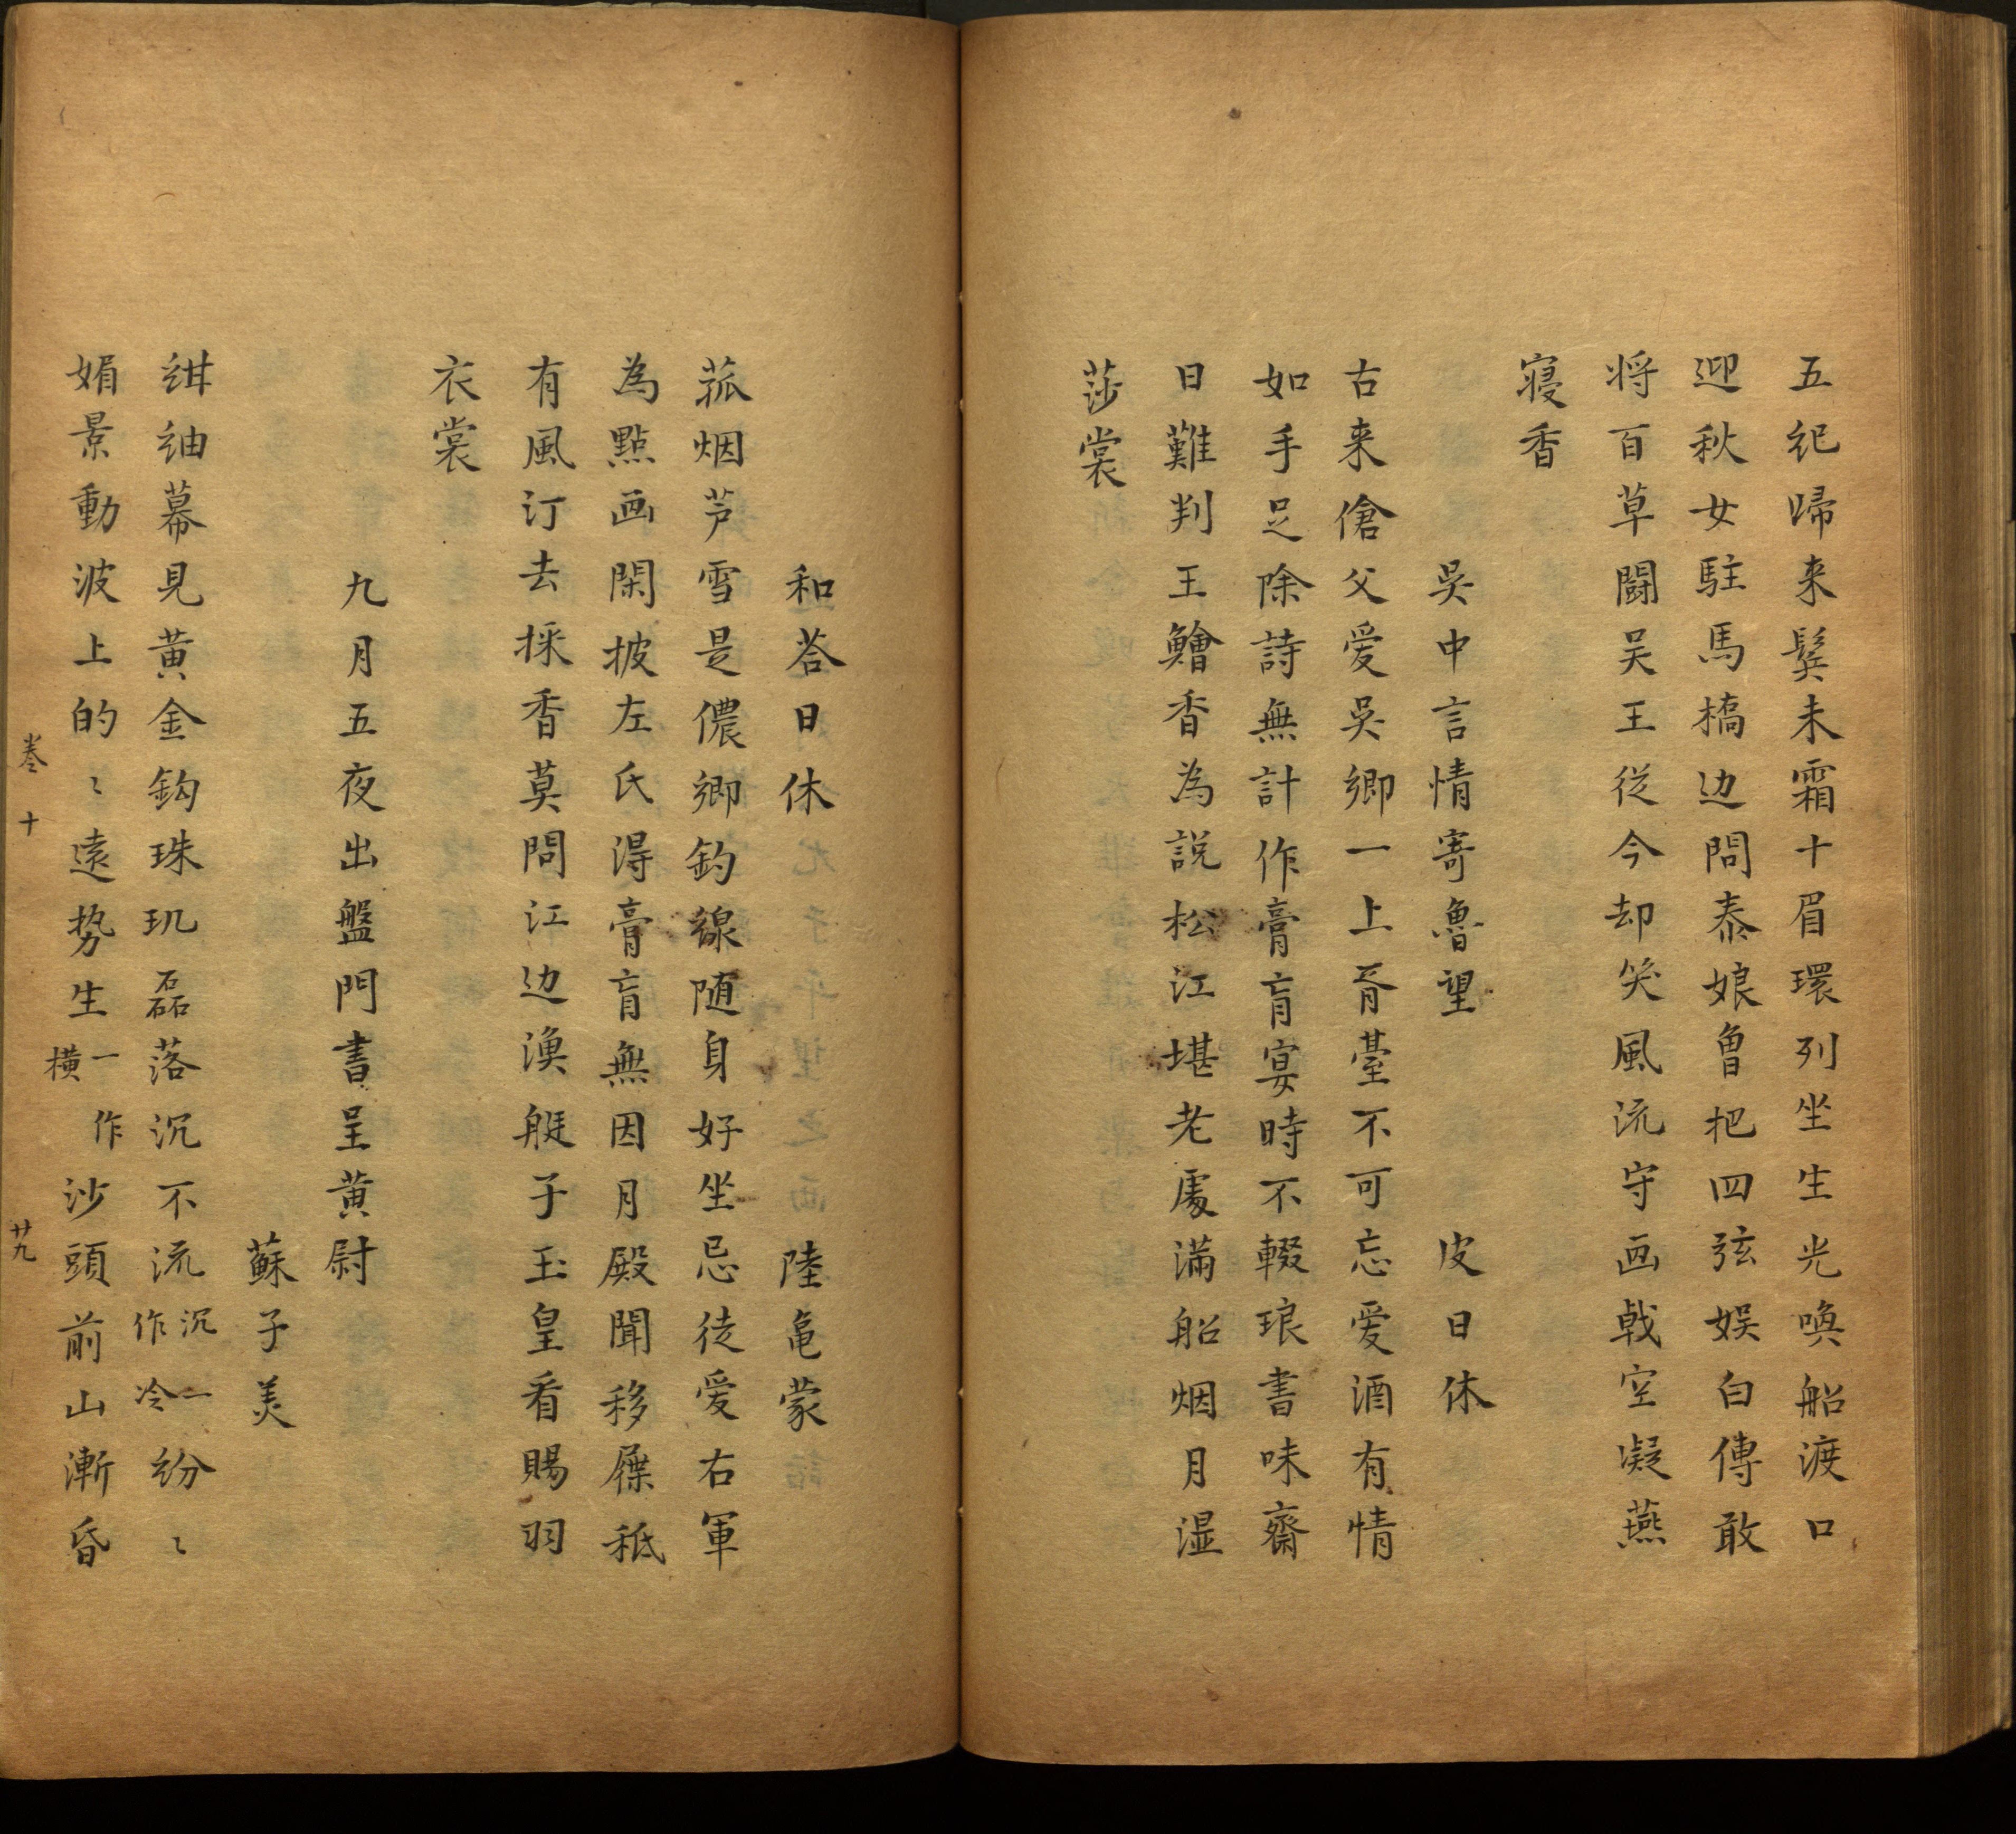 五紀歸来鬂未霜十眉環列坐生光喚船渡口
迎秋女駐馬橋边問泰娘曾把四弦娱白傅敢
将百草闘吴王従今却笑風流守画戟空凝燕
寝香
吳中言情寄魯望 皮日休
古来傖父爱吳鄉一上胥臺不可忘爱酒有情
如手足除詩無計作膏肓宴時不輟琅書味齋
日難判王鱠香為説松江堪老處滿船烟月湿
莎裳
和荅日休 陸亀蒙
菰烟芦雪是儂鄉釣線随身好坐忌徒爱右軍
為點画閑披左氏淂膏肓無因月殿聞移屧秪
有風汀去採香莫問江边漁艇子玉皇看賜羽
衣裳
九月五夜出盤門書呈黄尉
蘇子美
紺紬幕見黄金鈎珠玑磊落沉不流沉一作冷紛〻
娟景動波上的〻遠势生一作横沙頭前山漸昏
巻十 廿九